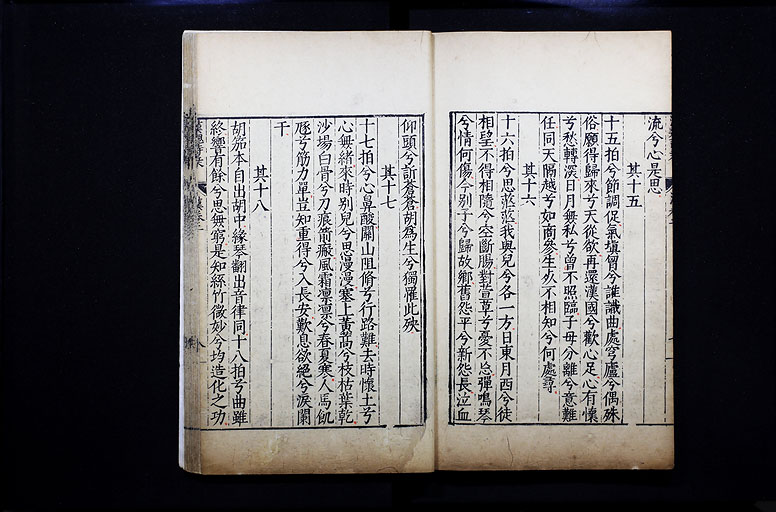 流兮心是思
其十五
十五拍兮節調促氣填胷兮誰識曲處穹廬兮偶殊
俗願得歸來兮天從欲再還漢國兮歡心足心有懷
兮愁轉深日月無私兮曾不照臨子母分離兮意難
任同天隔越兮如商參生死不相知兮何處尋
其十六
十六拍兮思茫茫我與兒兮各一方日東月西兮徒
相望不得相隨兮空斷腸對萱草兮憂不忘彈鳴琴
兮情何傷今别子兮歸故鄉舊怨平兮新怨長泣血
仰頭兮訴蒼蒼胡為生兮獨罹此殃
其十七
十七拍兮心鼻酸關山阻脩兮行路難去時懷土兮
心無緒來時别兒兮思漫漫塞上黃蒿兮枝枯葉乾
沙場白骨兮刀痕箭瘢風霜凛凛兮春夏寒人馬飢
豗兮筋力單豈知重得兮入長安歎息欲絕兮淚闌
干
其十八
胡笳本自出胡中緣琴翻出音律同十八拍兮曲雖
終響有餘兮思無窮是知絲竹微妙兮均造化之功